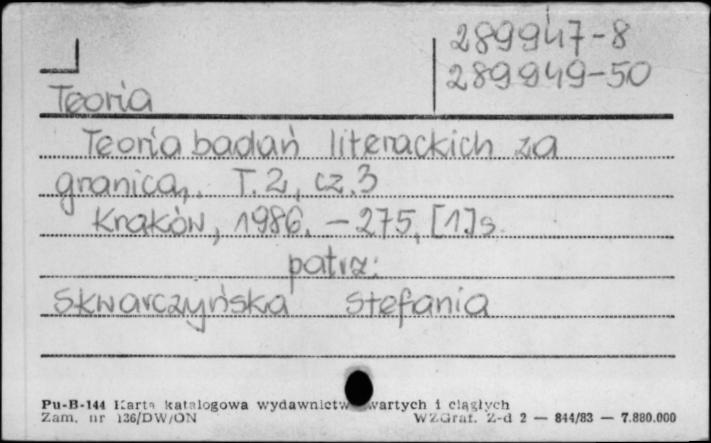 289947-8
289949-50
Teoria
Teoria badań literackich za
granicą. T. 2, cz. 3
Kraków, 1986. - 275, [1] s.
patrz:
Skwarczyńska Stefania
Pu-B-144 Karta katalogowa wydawnictw zwartych i ciągłych
Zam. nr 136/DW/ON WZGraf. Z-d 2 — 844/83 — 7.880.000